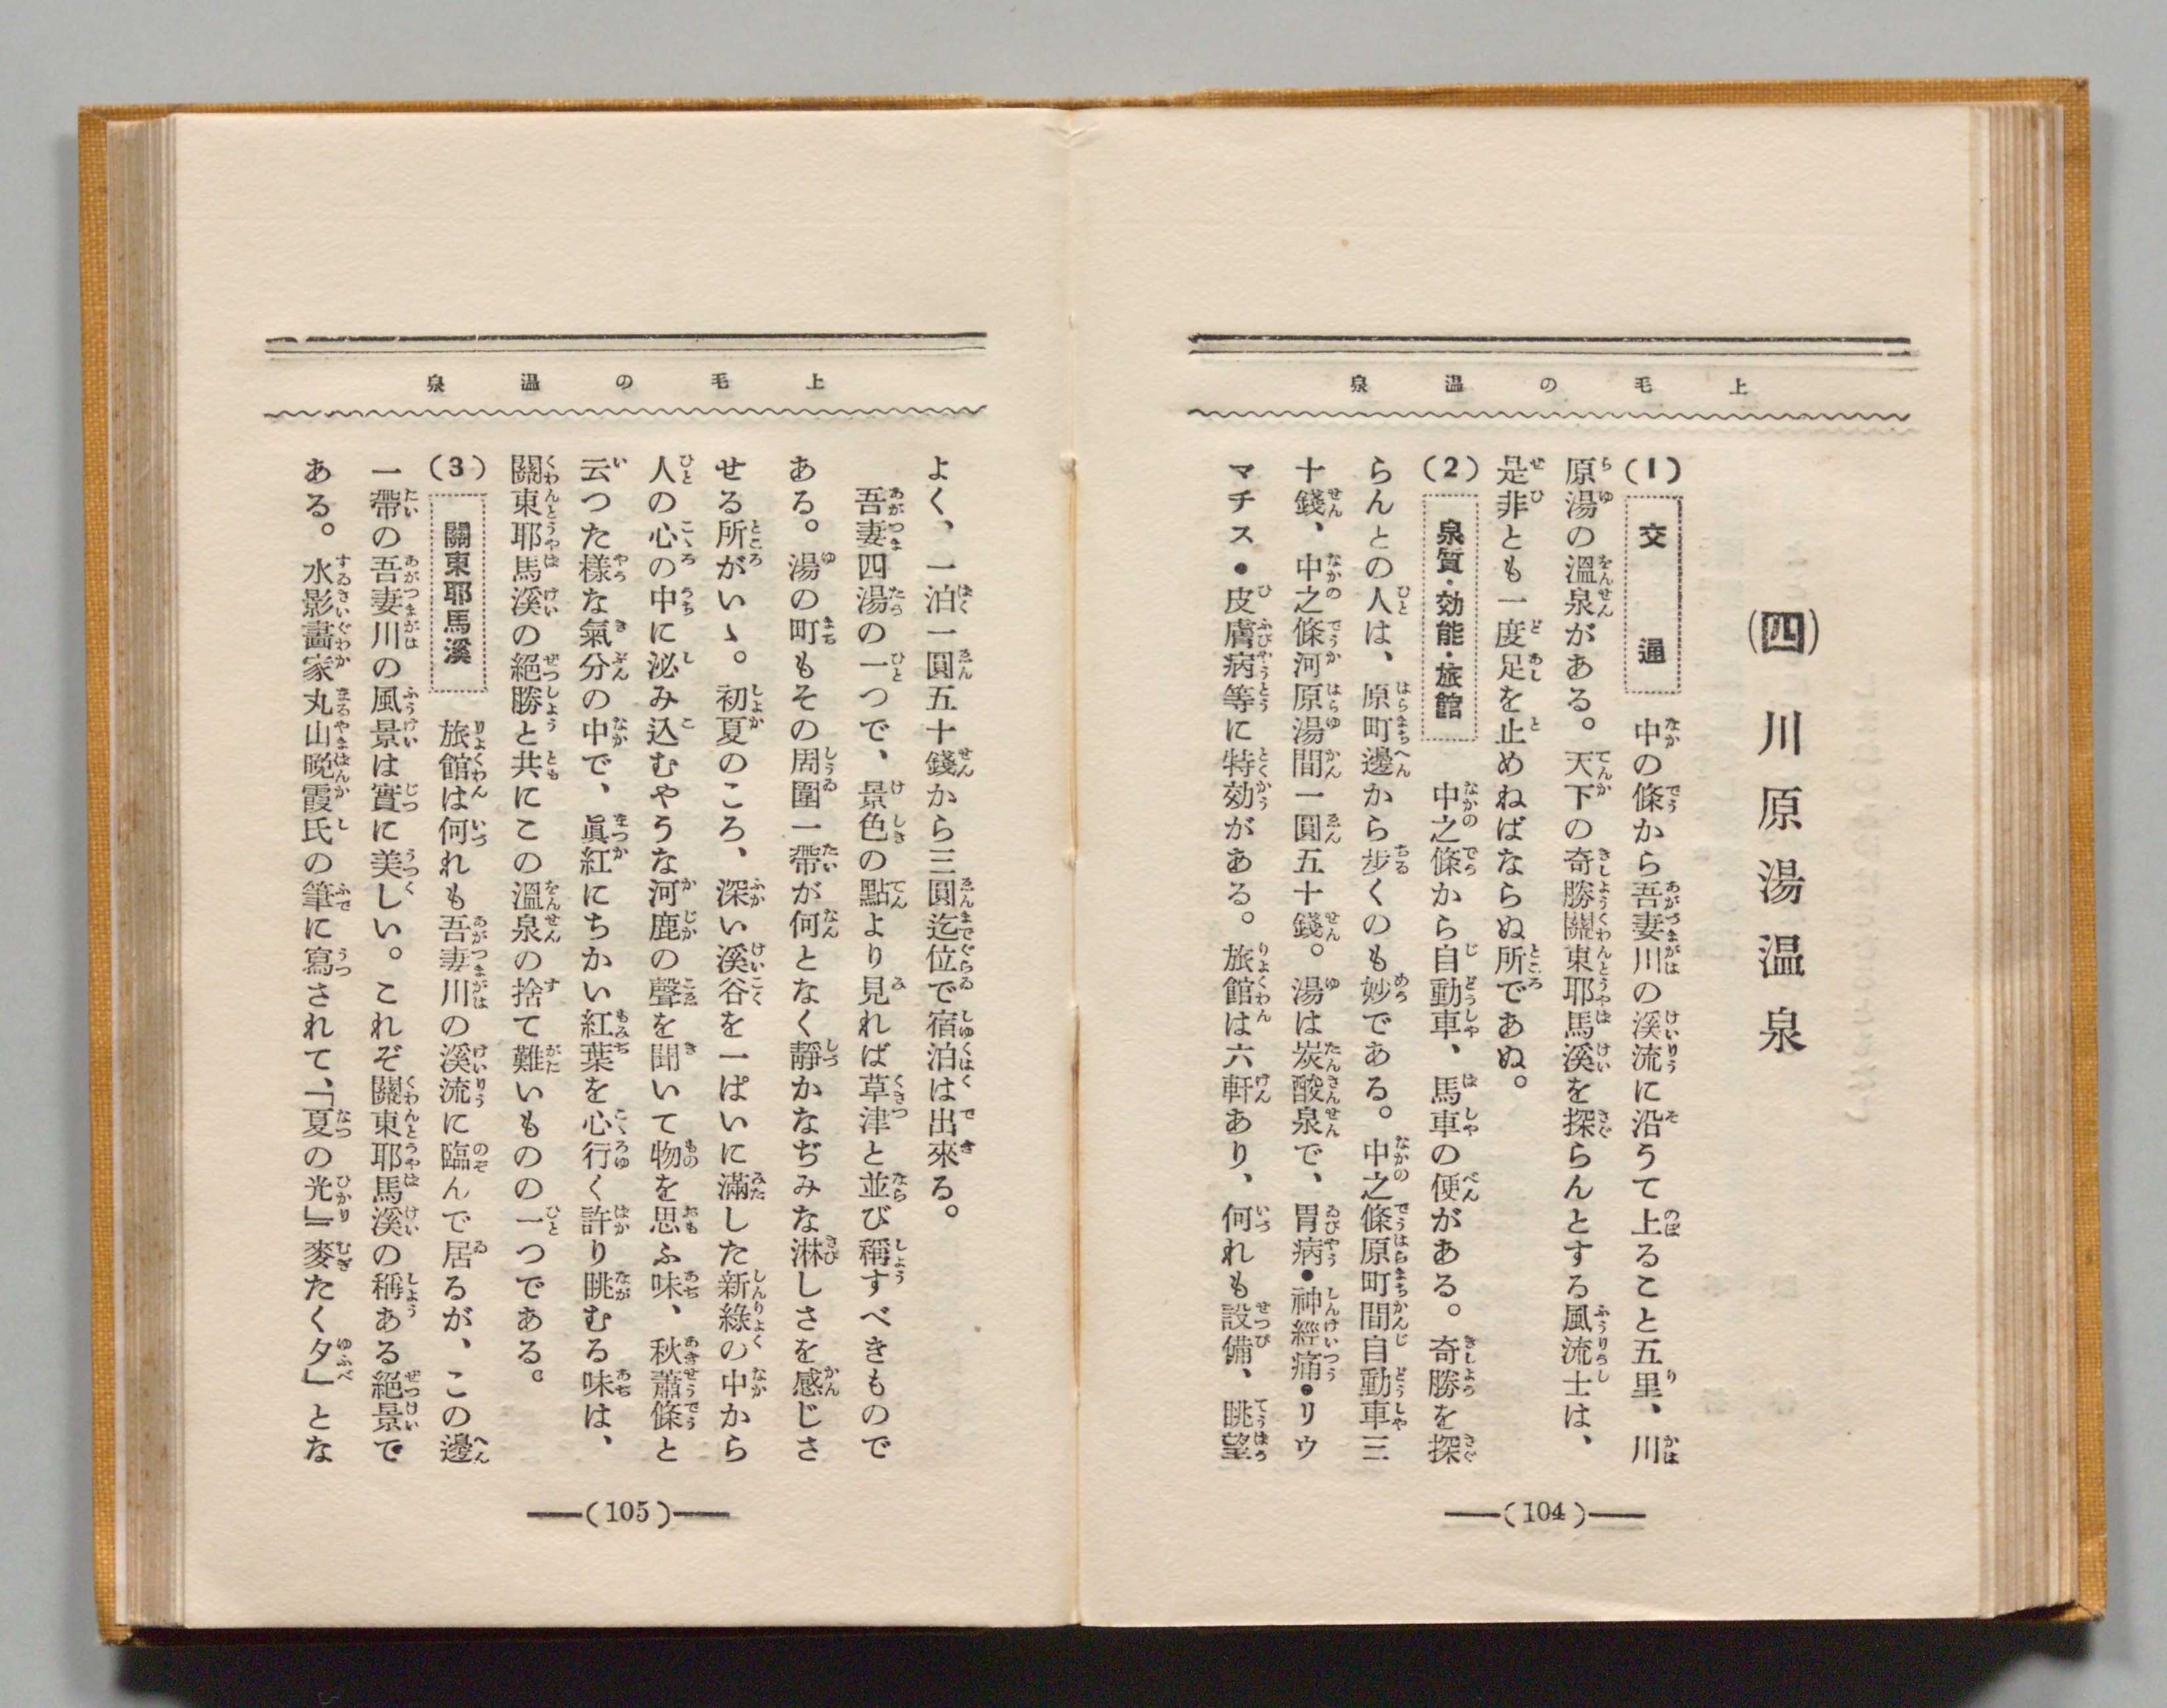 上毛の温泉
(四)川原湯温泉
(1) 交通 中の條から吾妻川の溪流に沿うて上ること五里、川
原湯の溫泉がある。天下の奇勝關東耶馬溪を探らんとする風流士は、
是非とも一度足を止めねばならぬ所であぬ。
(2) 泉質・効能・旅館 中之條から自動車、馬車の便がある。奇勝を探
らんとの人は、原町邊から步くのも妙である。中之條原町間自動車三
十錢、中之條河原湯間一圓五十錢。湯は炭酸泉で、胃病・神經痛・リウ
マチス・皮膚病等に特効がある。旅館は六軒あり、何れも設備、眺望
(104)
上毛の温泉
よく、一泊一圓五十錢から三圓迄位で宿泊は出來る。
吾妻四湯の一つで、景色の點より見れば草津と並び稱すべきもので
ある。湯の町もその周圍一帶が何となく靜かなぢみな淋しさを感じさ
せる所がいゝ。初夏のころ、深い溪谷を一ぱいに滿した新綠の中から
人の心の中に泌み込むやうな河鹿の聲を聞いて物を思ふ味、秋蕭條と
云つた樣な氣分の中で、眞紅にちかい紅葉を心行く許り眺むる味は、
關東耶馬溪の絕勝と共にこの溫泉の捨て難いものの一つである。
(3) 關東耶馬溪 旅館は何れも吾妻川の溪流に臨んで居るが、この邊
一帶の吾妻川の風景は實に美しい。これぞ關東耶馬溪の稱ある絕景で
ある。水影畵家丸山晩霞氏の筆に寫されて、「夏の光」「麥たく夕」とな
(105)